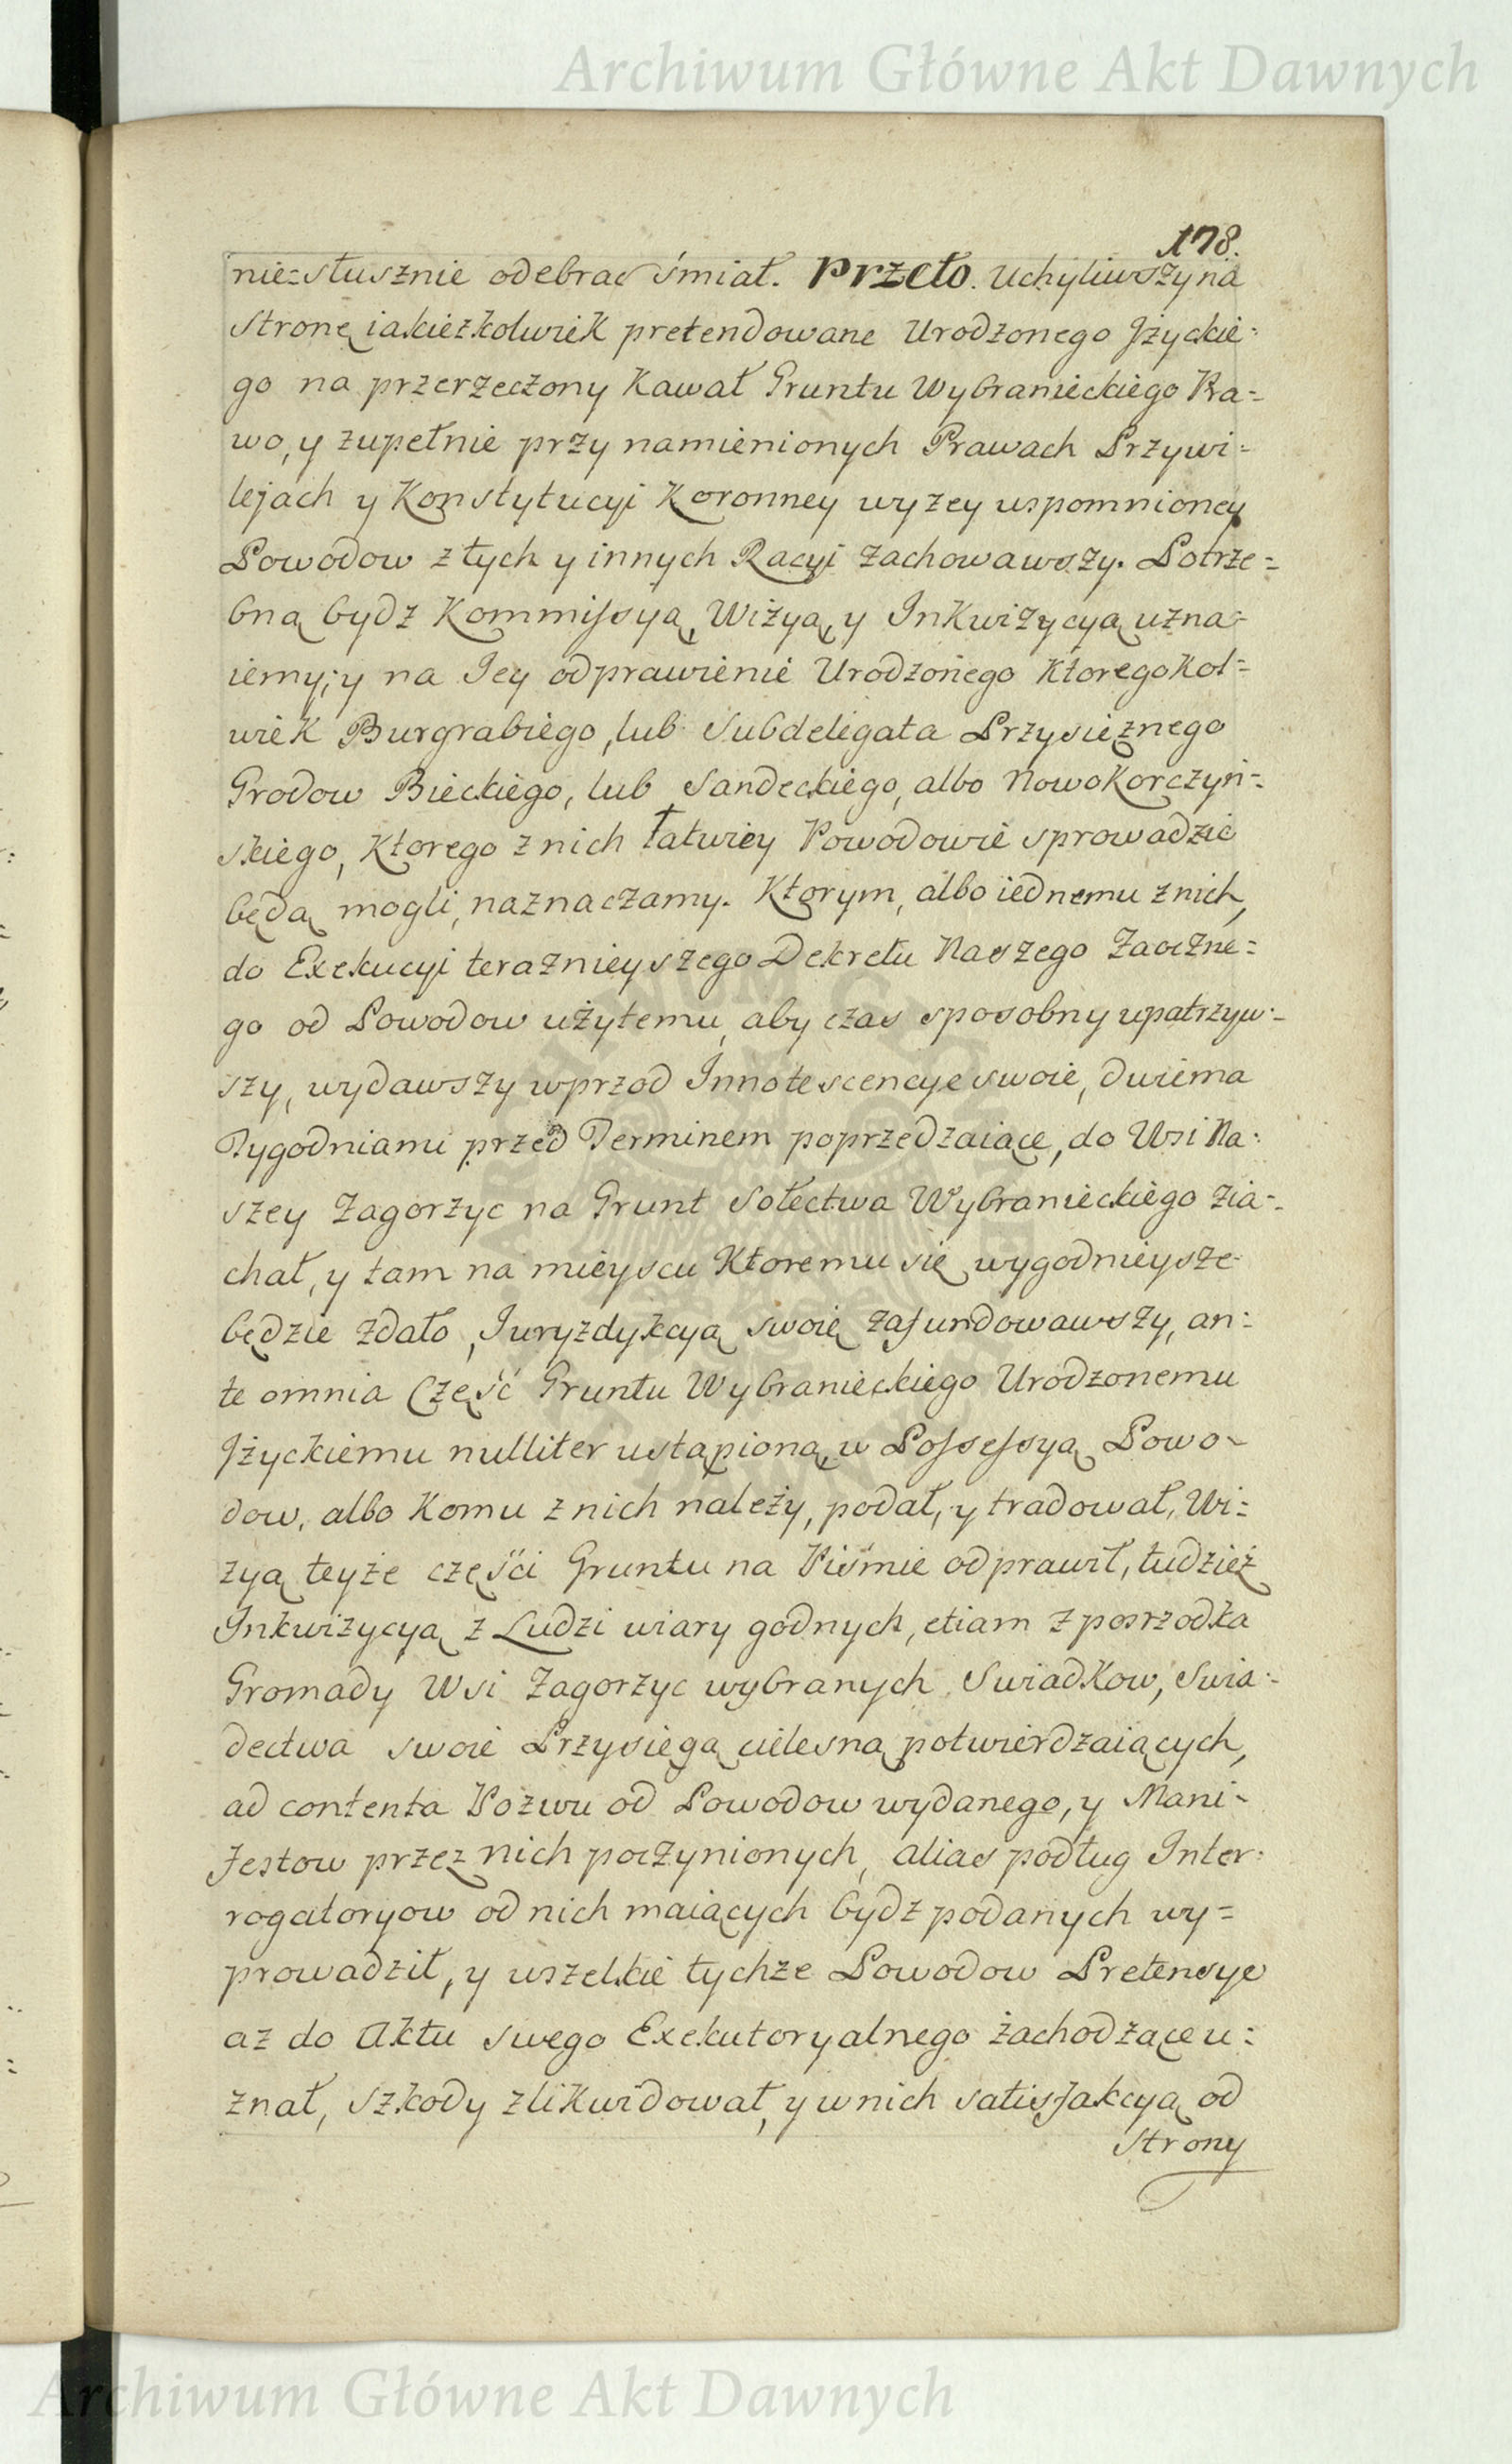 Archiwum Główne Akt Dawnych
178.
nie=słusznie odebrać śmiał. Przeto. Uchyliwszy na
Stronę iakieżkolwiek pretendowane Urodzonego Jżyckie:
go na przerzeczony Kawał Gruntu Wybranieckiego Pra=
wo, y zupełnie przy namienionych Prawach Przywi=
lejach y Konstytucyi Koronney wyżey uspomnioney
Powodow z tych y innych Racyi zachowawszy. Potrze=
bną bydz Kommissyą, Wizyą, y Inkwizycyą uzna=
iemy; y na Jey odprawienie Urodzonego Ktoregokol=
wiek Burgrabiego, lub Subdelegata Przysiężnego
Grodow Bieckiego, lub Sandeckiego, albo Nowokorczyń=
skiego, Ktorego z nich łatwiey Powodowie sprowadzić
będą mogli, naznaczamy. Ktorym, albo iednemu z nich,
do Exekucyi teraznieyszego Dekretu Naszego Zaoczne=
go od Powodow użytemu, aby czas sposobny upatrzyw:
szy, wydawszy wprzod Innotescencye swoie, dwiema
Tygodniami przed Terminem poprzedzaiące, do Wsi Na:
szey Zagorzyc na Grunt Sołectwa Wybranieckiego zia=
chał, y tam na mieyscu Ktoremu się wygodnieysze
będzie zdało, Juryzdykcyą swoię zafundowawszy, an:
te omnia Część Gruntu Wybranieckiego Urodzonemu
Jżyckiemu nulliter ustąpioną, w Possessyą Powo-
dow, albo Komu z nich należy, podał, y tradował, Wi=
zyą teyże części Gruntu na Piśmie odprawił, tudzież
Inkwizycyą z Ludzi wiary godnych, etiam z posrzodka
Gromady Wsi Zagorzyc wybranych Swiadkow, Swia:
dectwa swoie Przysięgą cielesną potwierdzaiących,
ad contenta Pozwu od Powodow wydanego, y Mani-
festow przez nich poczynionych, alias podług Inter:
rogatoryow od nich maiących bydz podanych wy=
prowadził, y wszelkie tychże Powodow Pretensye
aż do Aktu swego Exekutoryalnego zachodzące u:
znał, Szkody zlikwidował, y w nich satisfakcyą od
Strony
Archiwum Główne Akt Dawnych